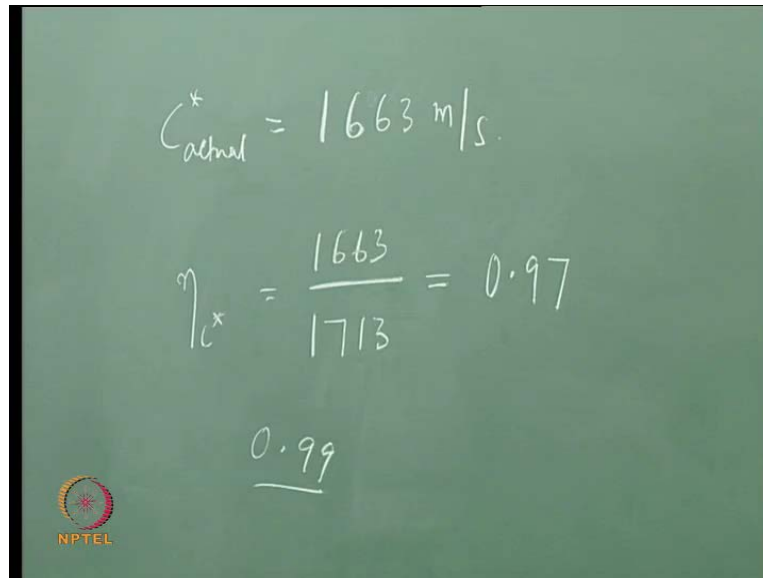 C*actual = 1663 m/s.
ηc* = 1663 / 1713 = 0.97
0.99
NPTEL